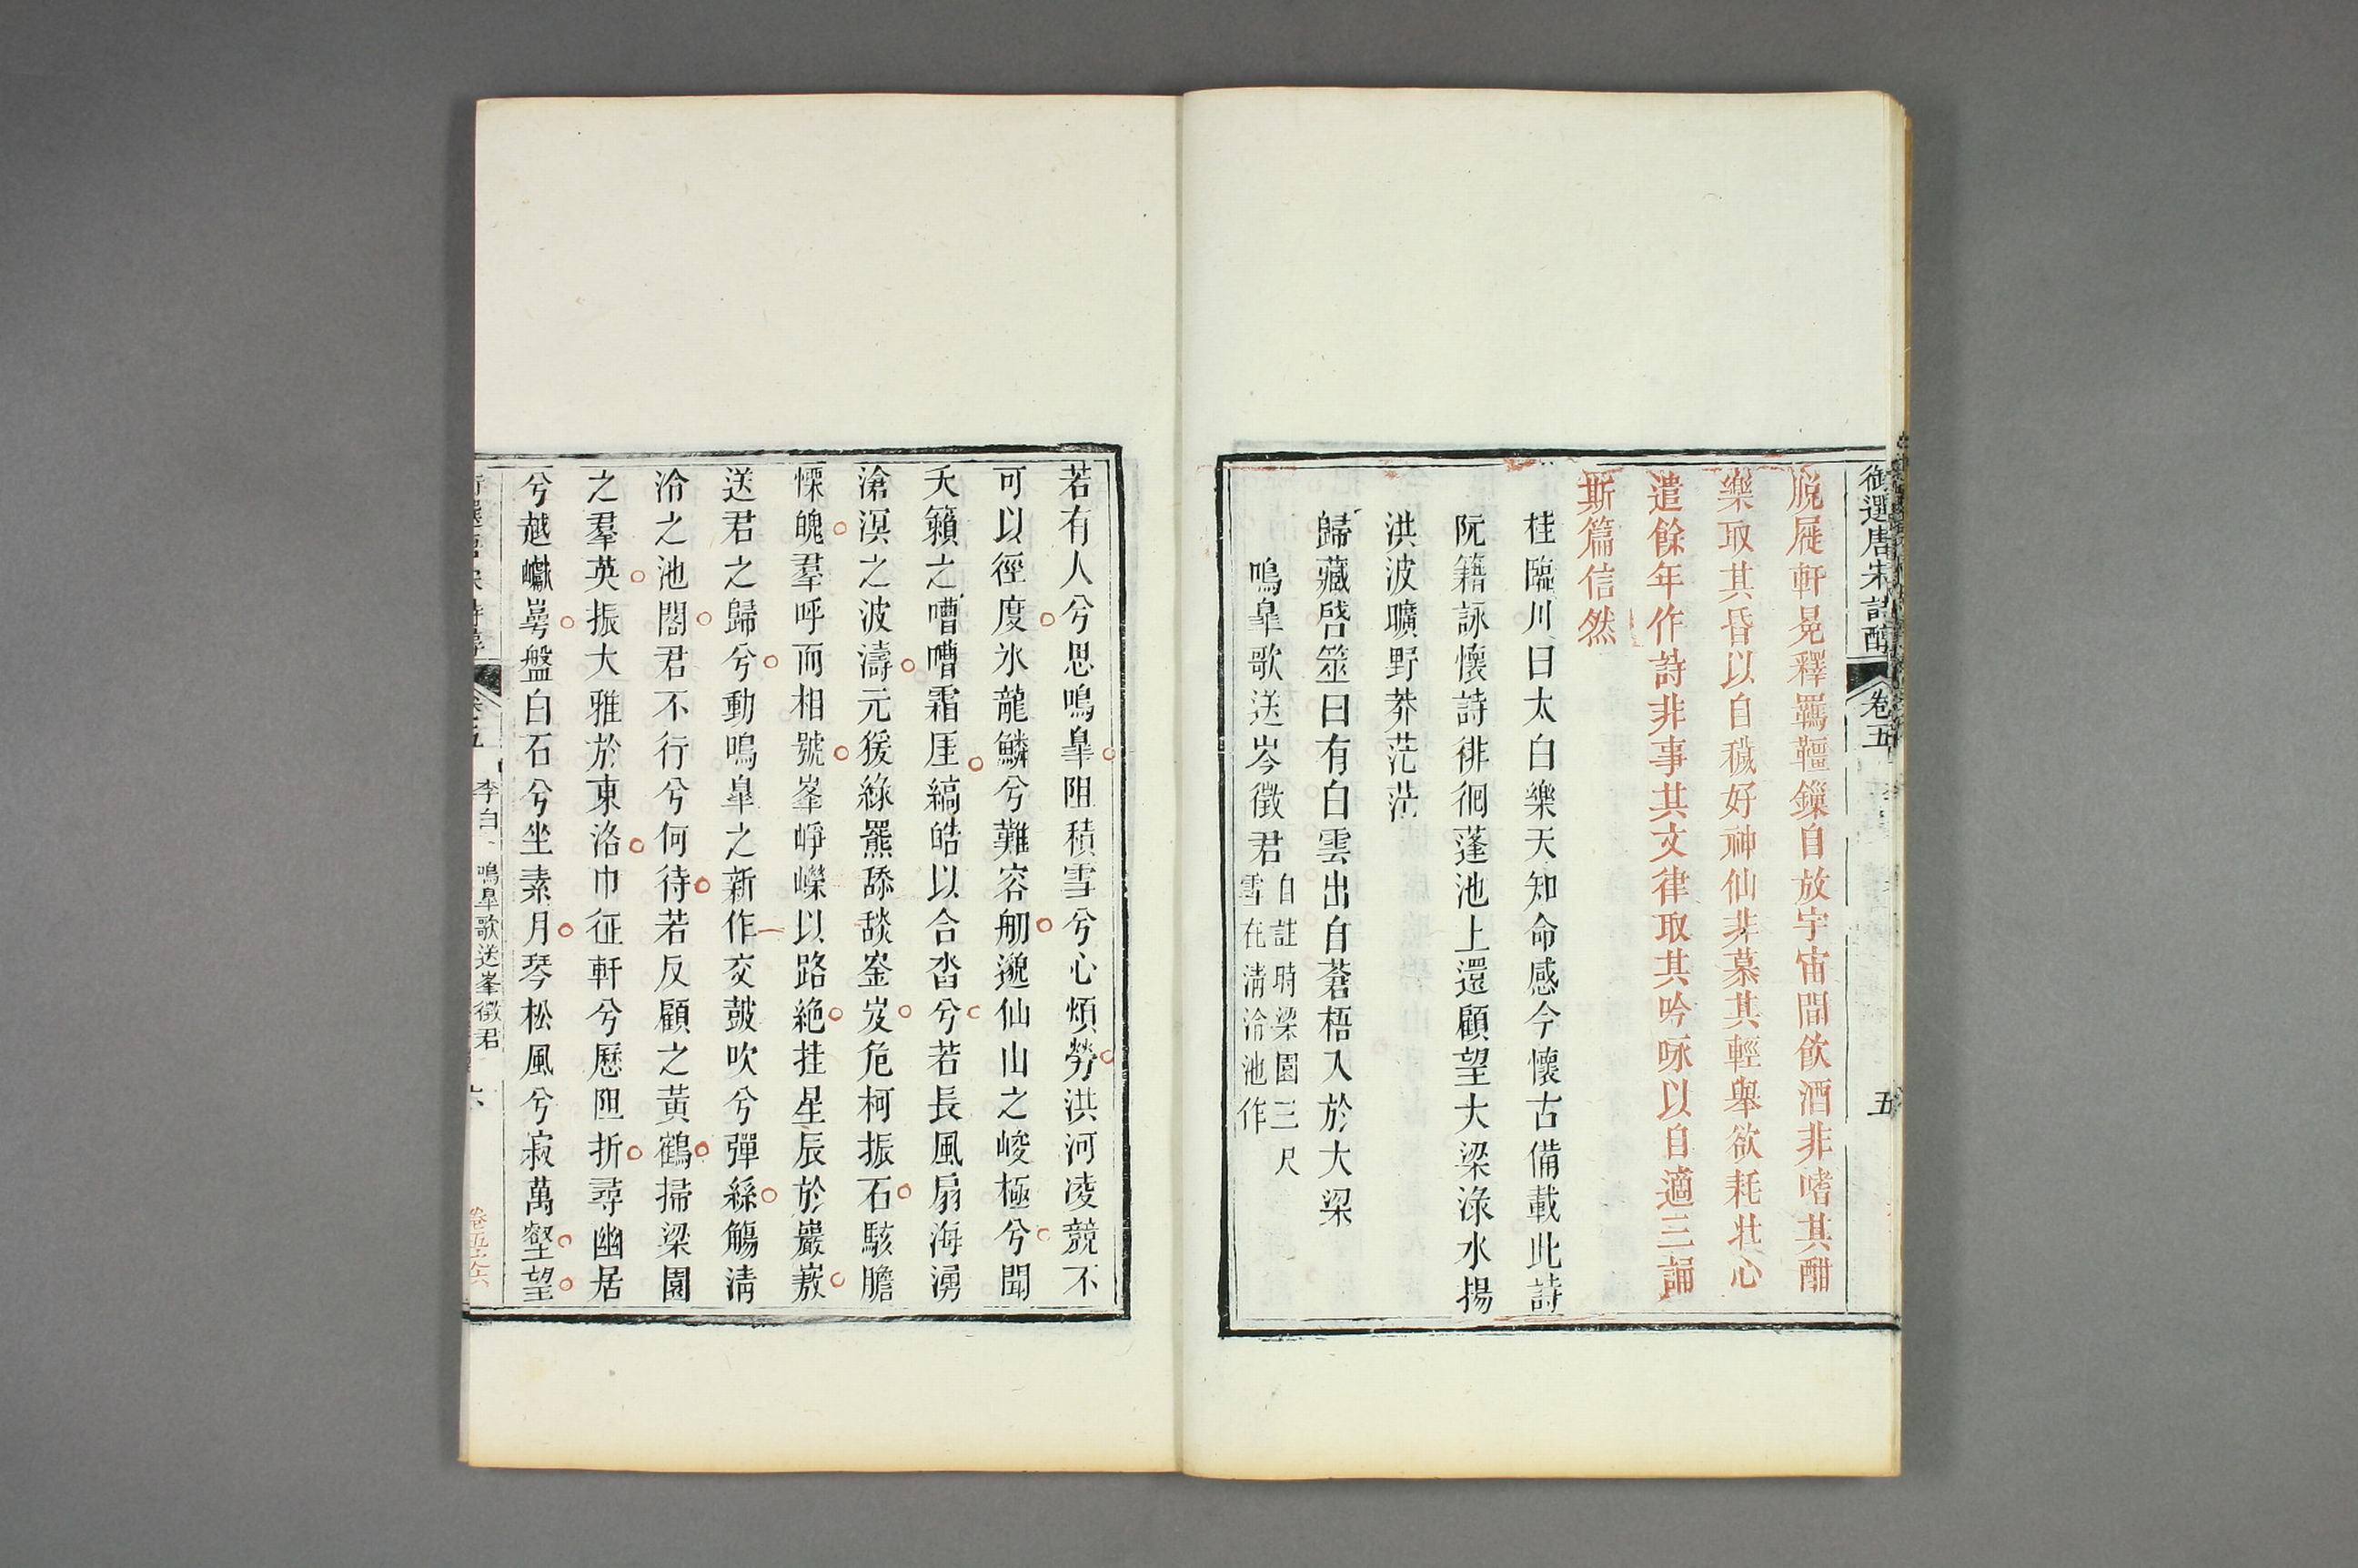 御選唐宋詩醇
卷五
五
脫屣軒冕釋羈韁鏁自放宇宙間飲酒非嗜其酣
樂取其昏以自穢好神仙非慕其輕舉欲耗壯心
遣餘年作詩非事其文律取其吟咏以自適三誦
斯篇信然
桂臨川曰太白樂天知命感今懷古備載此詩
阮籍詠懷詩徘徊蓬池上還顧望大梁淥水揚
洪波曠野莽茫茫
歸藏啓筮曰有白雲出自蒼梧入於大梁
鳴臯歌送岑徵君
自註時梁園三尺
雪在清泠池作
若有人兮思鳴臯阻積雪兮心煩勞洪河凌競不
可以徑度氷龍鱗兮難容舠邈仙山之峻極兮聞
天籟之嘈嘈霜厓縞皓以合沓兮若長風扇海湧
滄溟之波濤元猨綠羆舔舕崟岌危柯振石駭膽
慄魄羣呼而相號峯崢嶸以路絶挂星辰於巖嶅
送君之歸兮動鳴臯之新作交鼓吹兮彈絲觴淸
泠之池閣君不行兮何待若反顧之黃鶴掃梁園
之羣英振大雅於東洛巾征軒兮歷阻折尋幽居
兮越巘崿盤白石兮坐素月琴松風兮寂萬壑望
李白
鳴臯歌送峯徵君
六
卷五之六